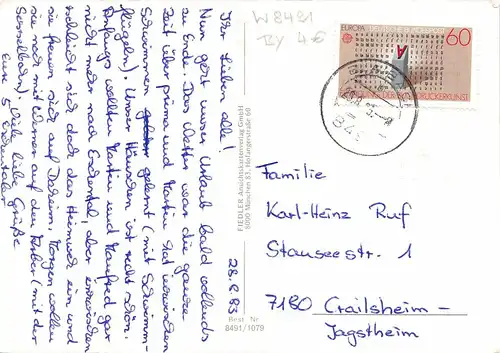 28.8.83
Ihr Lieben alle!
Nun geht unser Urlaub bald vollends
zu Ende. Das Wetter war die ganze
Zeit über prima und Martin hat inzwischen
Schwimmen gelernt (mit Schwimm-
flügeln). Unser Häuschen ist recht schön.
Anfangs wollten Martin und Manfred gar
nicht mehr nach Endental, aber inzwischen
schleicht sich doch das Heimweh ein und
sie freuen sich auf Daheim. Morgen wollen
sie noch mit Werner auf den Arber (mit der
Sesselbahn). Viele liebe Grüße
Eure 5
W 8491
BY 4€
FIEDLER Ansichtskartenverlag GmbH
8000 München 83, Hofangerstraße 60
Best. Nr.
8491/1079
EUROPA
60
A
849
Familie
Karl-Heinz Ruf
Stauseestr. 1
7180 Crailsheim-
Jagstheim